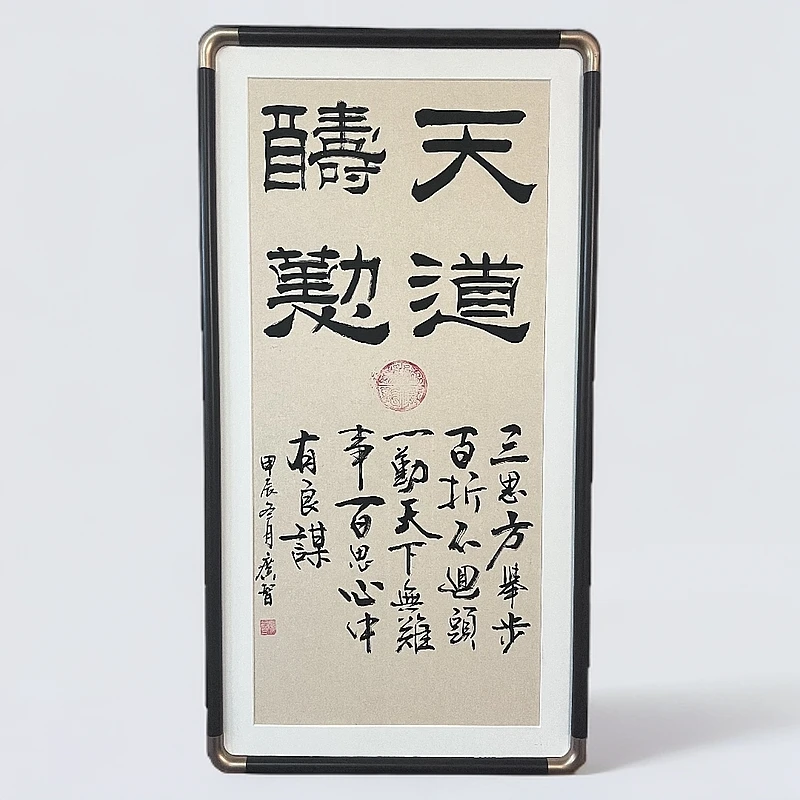 天道
醻勤
三思方舉步
百折不迴頭
一勤天下無難
事百思心中
有良謀
甲辰冬月廣智